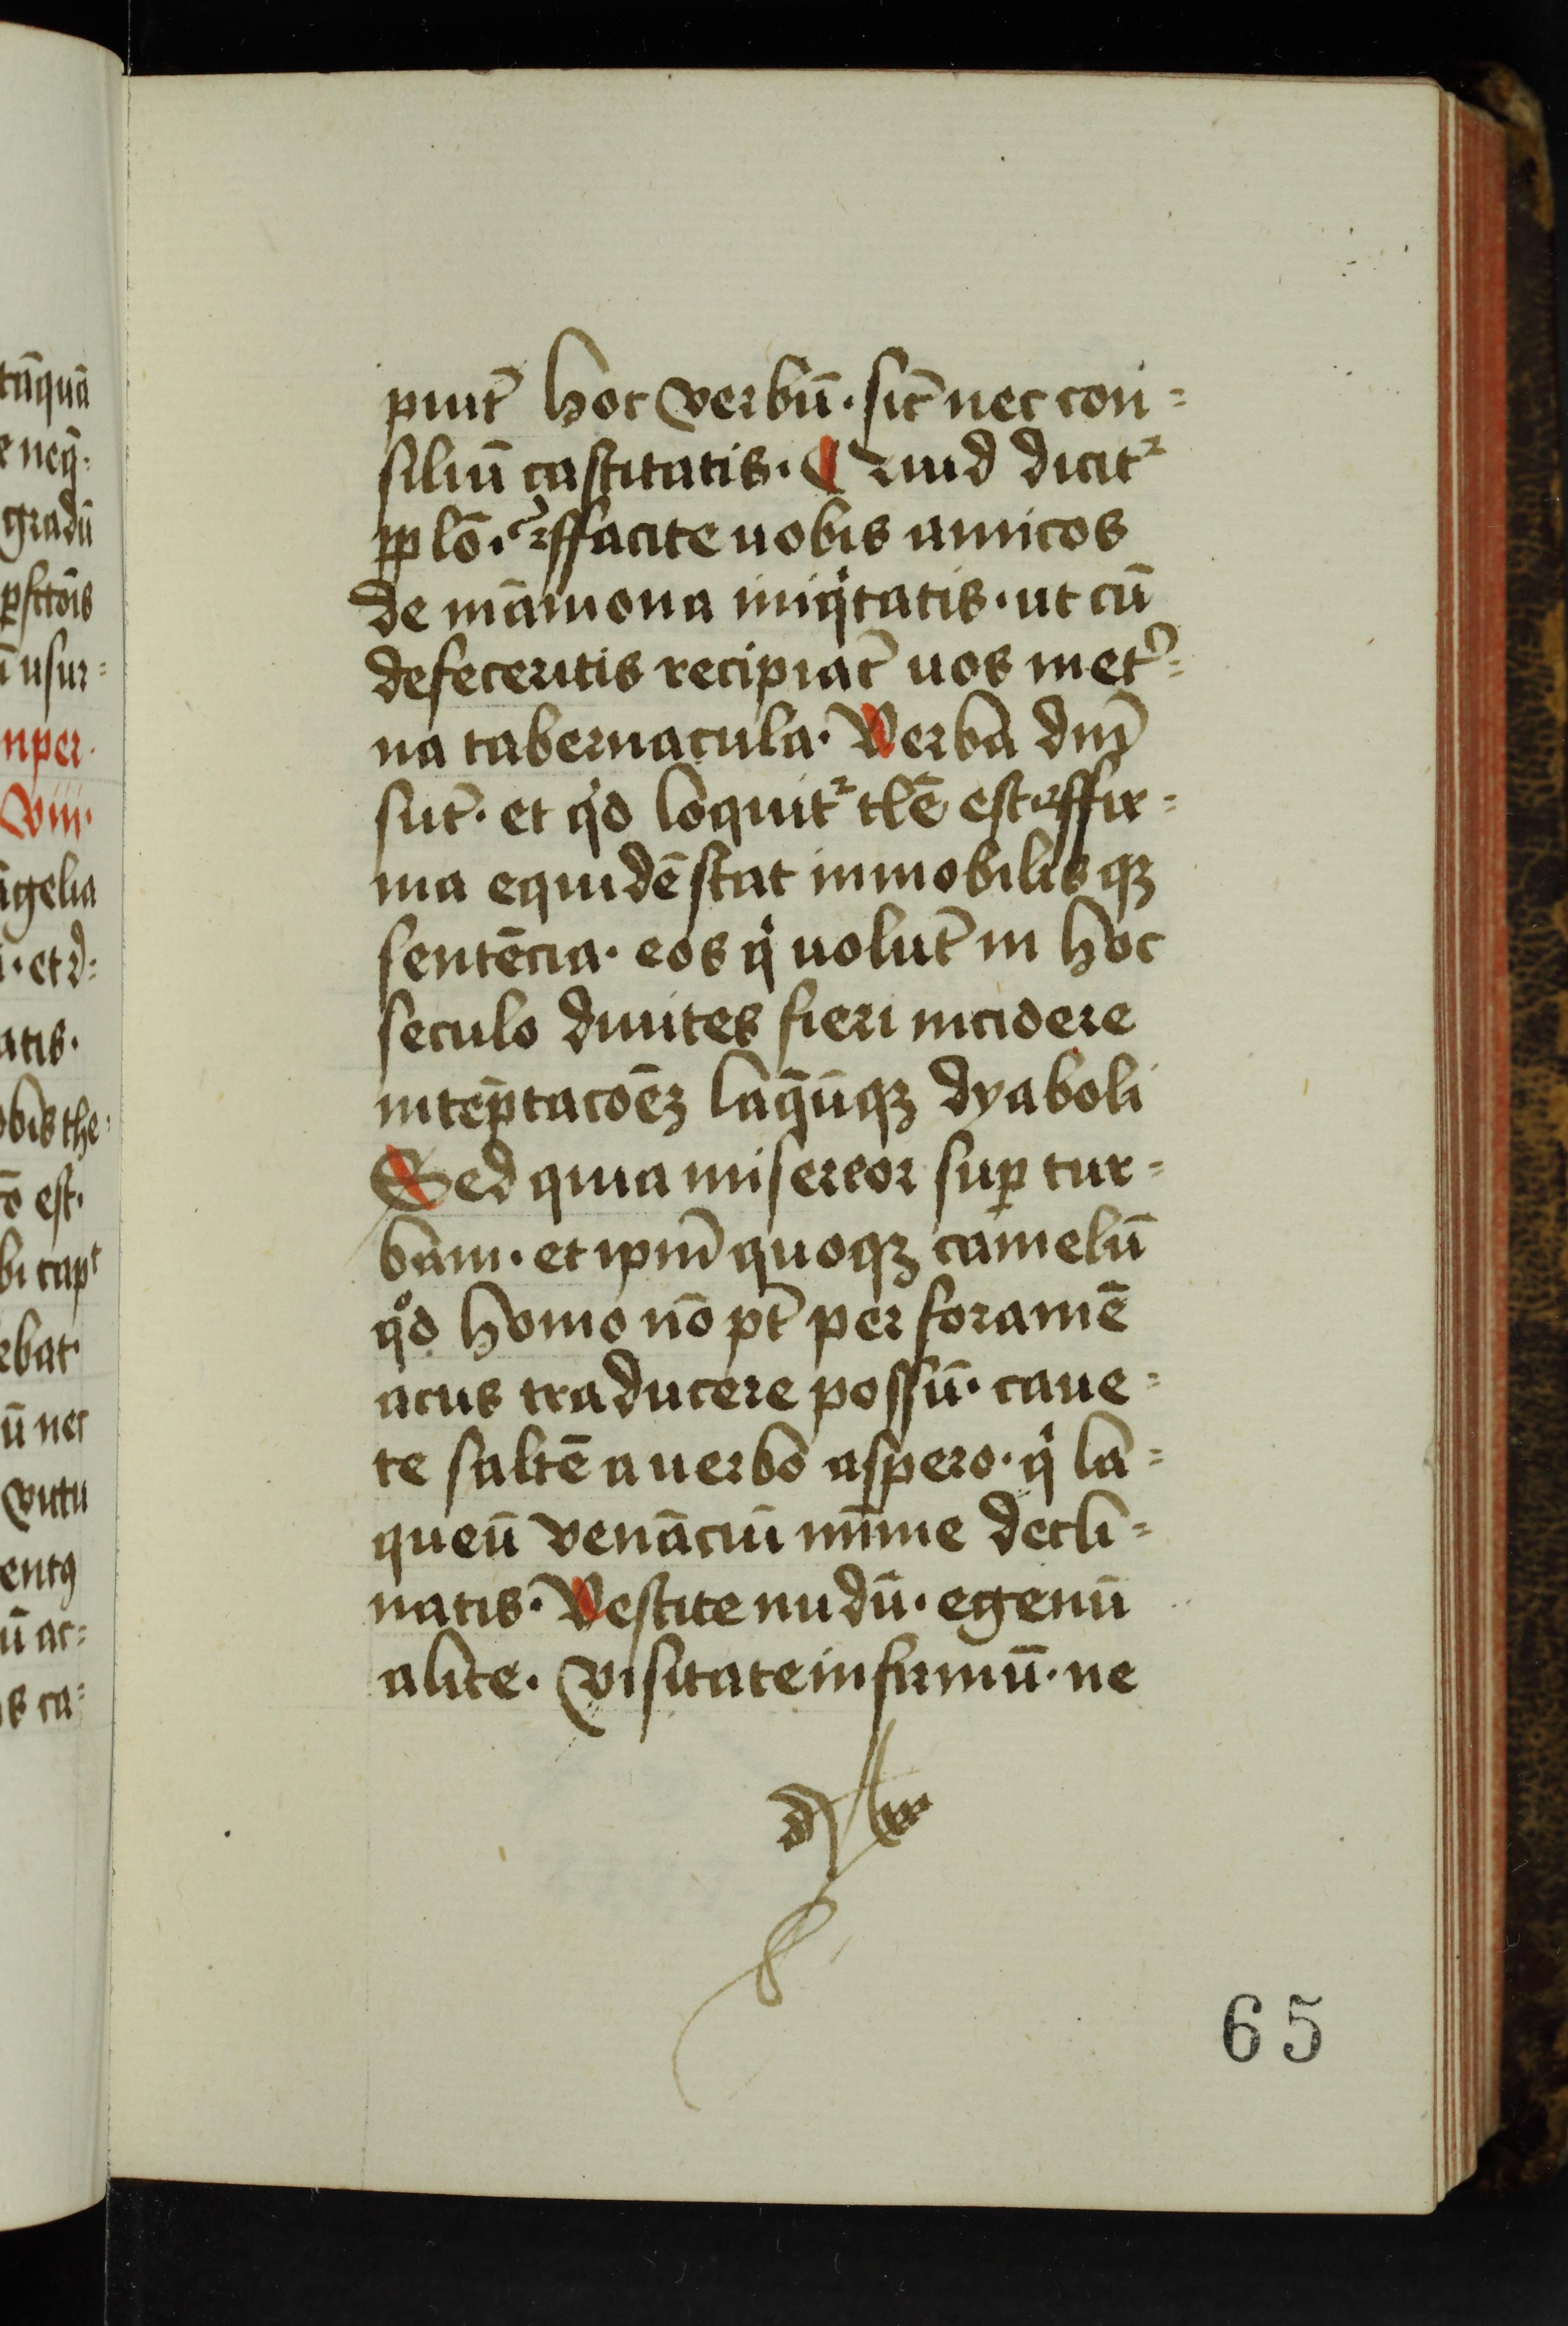 tāquā
e neq̄:
gradū
ꝑfctōis
ī usur=
nper.
viii.
āgelia
et d:
atis.
obis the:
ō est.
bi capᵗ
ebat
ū nec
virtu
entꝯ
ū ac=
s ca=
piūt hoc verbū. sic̄ nec con=
siliū castitatis. Quid dicitᷣ
pplō. ffacite uobis amicos
de māmona iniqͥtatis. ut cū
defeceritis recipiāt uos in etᷣ=
na tabernacula. Verba dn̄i
sūt. et qͥd loquitᷣ tlē est. ffir=
ma equidē stat inmobilisqꝫ
sentēcia. eos qͥ uolūt in hoc
seculo diuites fieri incidere
in tēptacōēꝫ laq̄ūqꝫ dyaboli
Sed quia misereor suꝑ tur=
bam. et ipm̄ quoqꝫ camelū
qͦd homo nō pt̄ per foramē
acus traducere possū. caue=
te saltē a uerbo aspero. qͥ la=
queū venāciū mīme decli=
natis. Vestite nudū. egenū
alite. visitate infirmū. ne
65